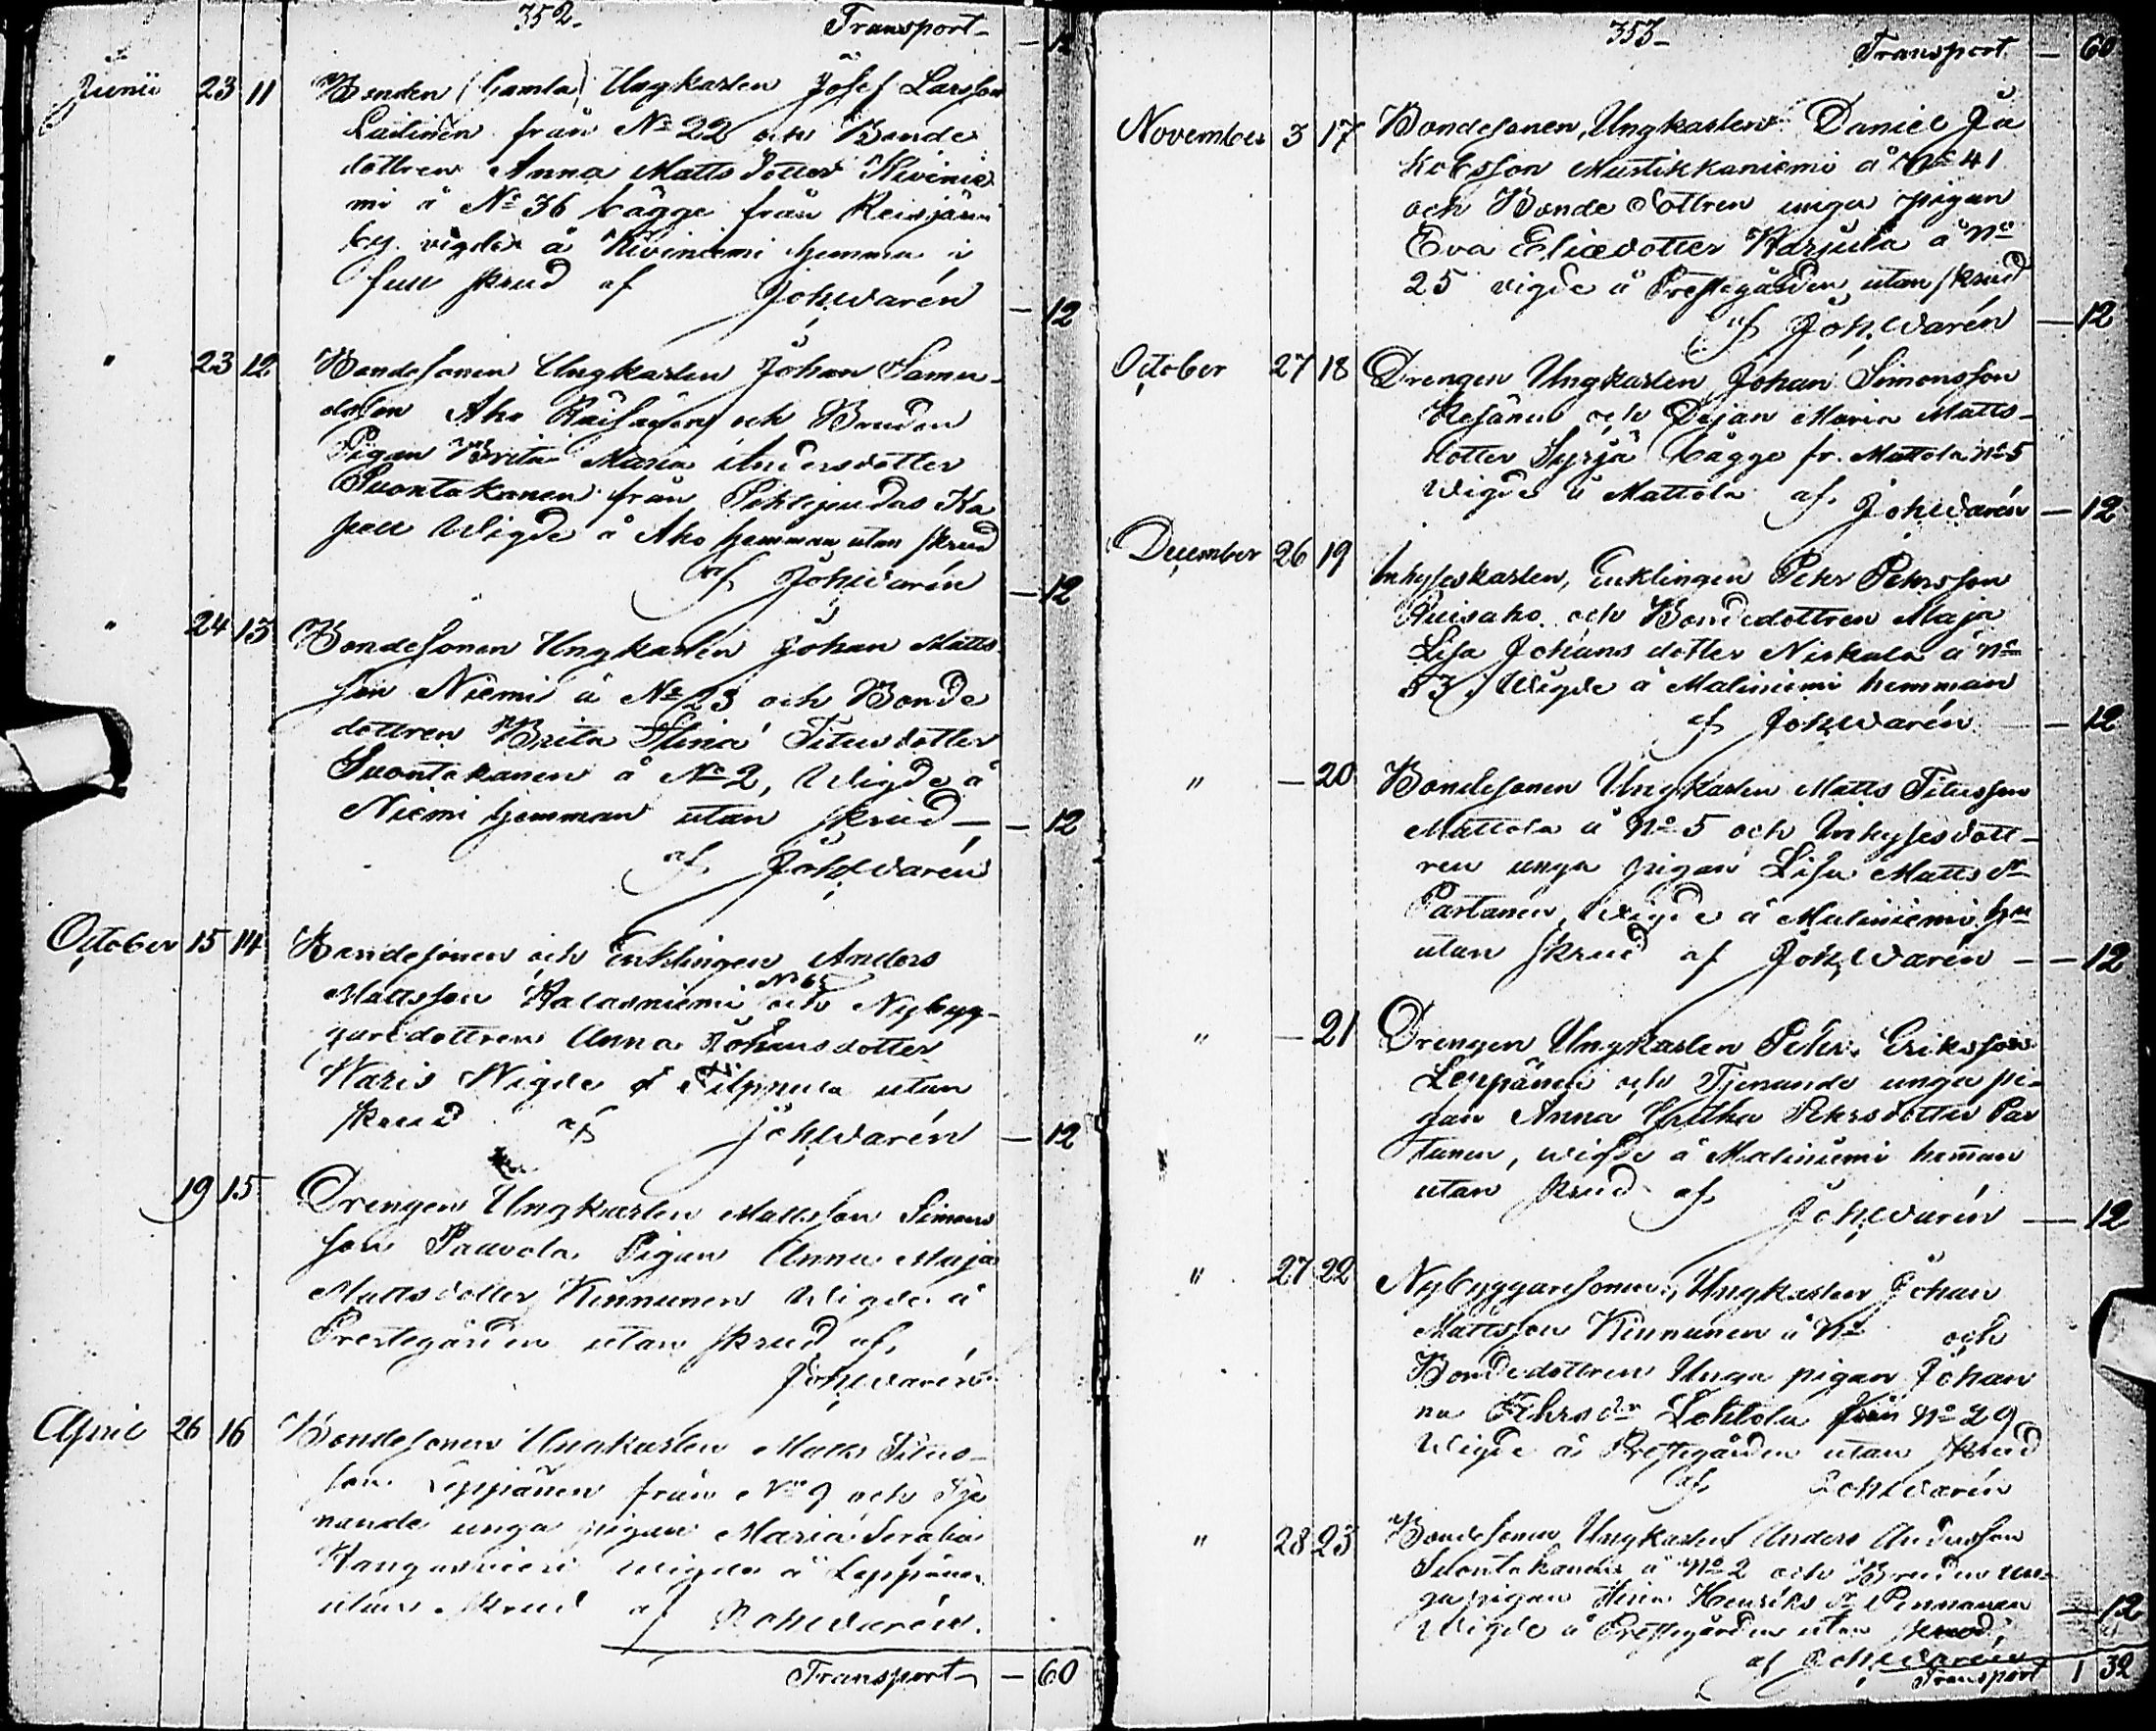 352.
Transport
Junii 23 11 Bonden (Gamla) Ungkarlen Josef Larsson
från No 22 och Bonde
dottren Anna Matts dotter Kivinie
mi å No 36 bägge från Reisjärvi
by. vigde å Kiviniemi hemman i
full skrud af Joh. Warén — 12
" 23 12 Bondesonen Ungkarlen Johan Samu-
elsson Aho Räisänen och Bruden
Pigan Brita Maria Andersdotter
Suontakanen från Pihtipudas Ka
pell Wigde å Aho hemman utan skrud
af Joh Warén — 12
" 24 13 Bondesonen Ungkarlen Johan Matts
son Niemi å No 23 och Bonde
dottren Brita Stina Titusdotter
Suontakanen å No 2, Wigde å
Niemi hemman utan skrud — — 12
af Joh Warén
October 15 14 Bondesonen och Enklingen Anders
Mattsson Kalaxniemi No 65 och Nybyg-
garedottren Anna Johansdotter
Waris Wigde å Tilpnula utan
skrud af Joh Warén — 12
19 15 Drengen Ungkarlen Mattsson Simons
son Paavola Pigan Anna Maja
Mattsdotter Kinnunen Wigde å
Prestegården utan skrud af
Joh Warén
April 26 16 Bondesonen Ungkarlen Matts Titus-
son Leppänen från No 9 och Tje
nande unga pigan Maria Serafia
Kangasnieri wigde å Leppänen
utan skrud af Joh Warén.
Transport — 60
353
Transport — 60
November 3 17 Bondesonen, Ungkarlen Daniel Ja
kobsson Mustikkaniemi å No 41
och Bonde dottren unga pigan
Eva Eliædotter Karjula å No
25 vigde å Prestegården utan skrud
af Joh. Warén — 12
October 27 18 Drengen Ungkarlen Johan Simonsson
Kesänen och Dejan Maria Matts-
dotter Syrjä bägge fr. Mattola No 5
Wigde å Mattola af Joh Warén — 12
December 26 19 Inhyseskarlen, Enklingen Pehr Pehrsson
Ruisaho och Bondedottren Maja
Lisa Johans dotter Niskala å No
53. Wigde å Maliniemi hemman
af Joh Warén — 12
" — 20 Bondesonen Ungkarlen Matts Titusson
Mattola å No 5 och Inhysesdott-
ren unga pigan Lisa Matts dr
Partanen, Wigde å Maliniemi hn
utan skrud af Joh. Warén — — 12
" — 21 Drengen Ungkarlen Pehr Eriksson
Leppänen och Tjenande unga pi-
gan Anna Gretha Pehrsdotter Par
tanen, wigde å Maliniemi hem̄an
utan skrud af Joh. Warén — 12
" 27 22 Nybyggaresonen, Ungkarlen Johan
Mattsson Kinnunen å No och
Bondedottren Unga pigan Johan
na Pehrs dr Lehtola från No 29
Wigde å Prestegården utan skrud
af Joh Warén
" 28 23 Bondesonen Ungkarlen Anders Andersson
Suontakanen å No 2 och Bruden un-
ga pigan Stina Henriks dr Pennanen — 12
Wigde å Prestegården utan skrud,
af Joh Warén
Transport 1 32